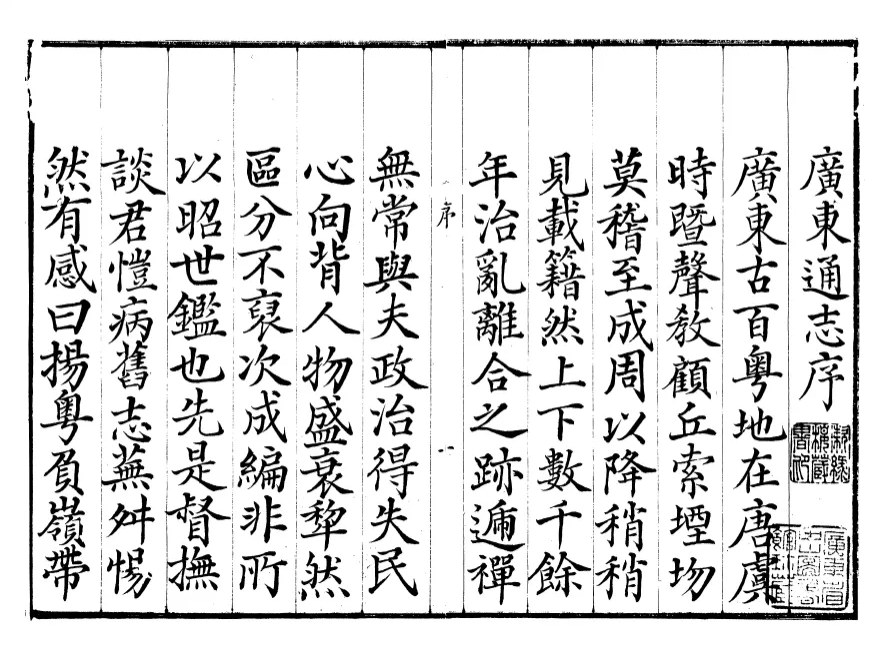 廣東通志序
廣東古百粵地在唐虞
時暨聲教顧丘索堙坳
莫稽至成周以降稍稍
見載籍然上下數千餘
年治亂離合之跡遞禪
序
一
無常與夫政治得失民
心向背人物盛衰犂然
區分不裒次成編非所
以昭世鑑也先是督撫
談君愷病舊志蕪舛惕
然有感曰揚粵負嶺帶